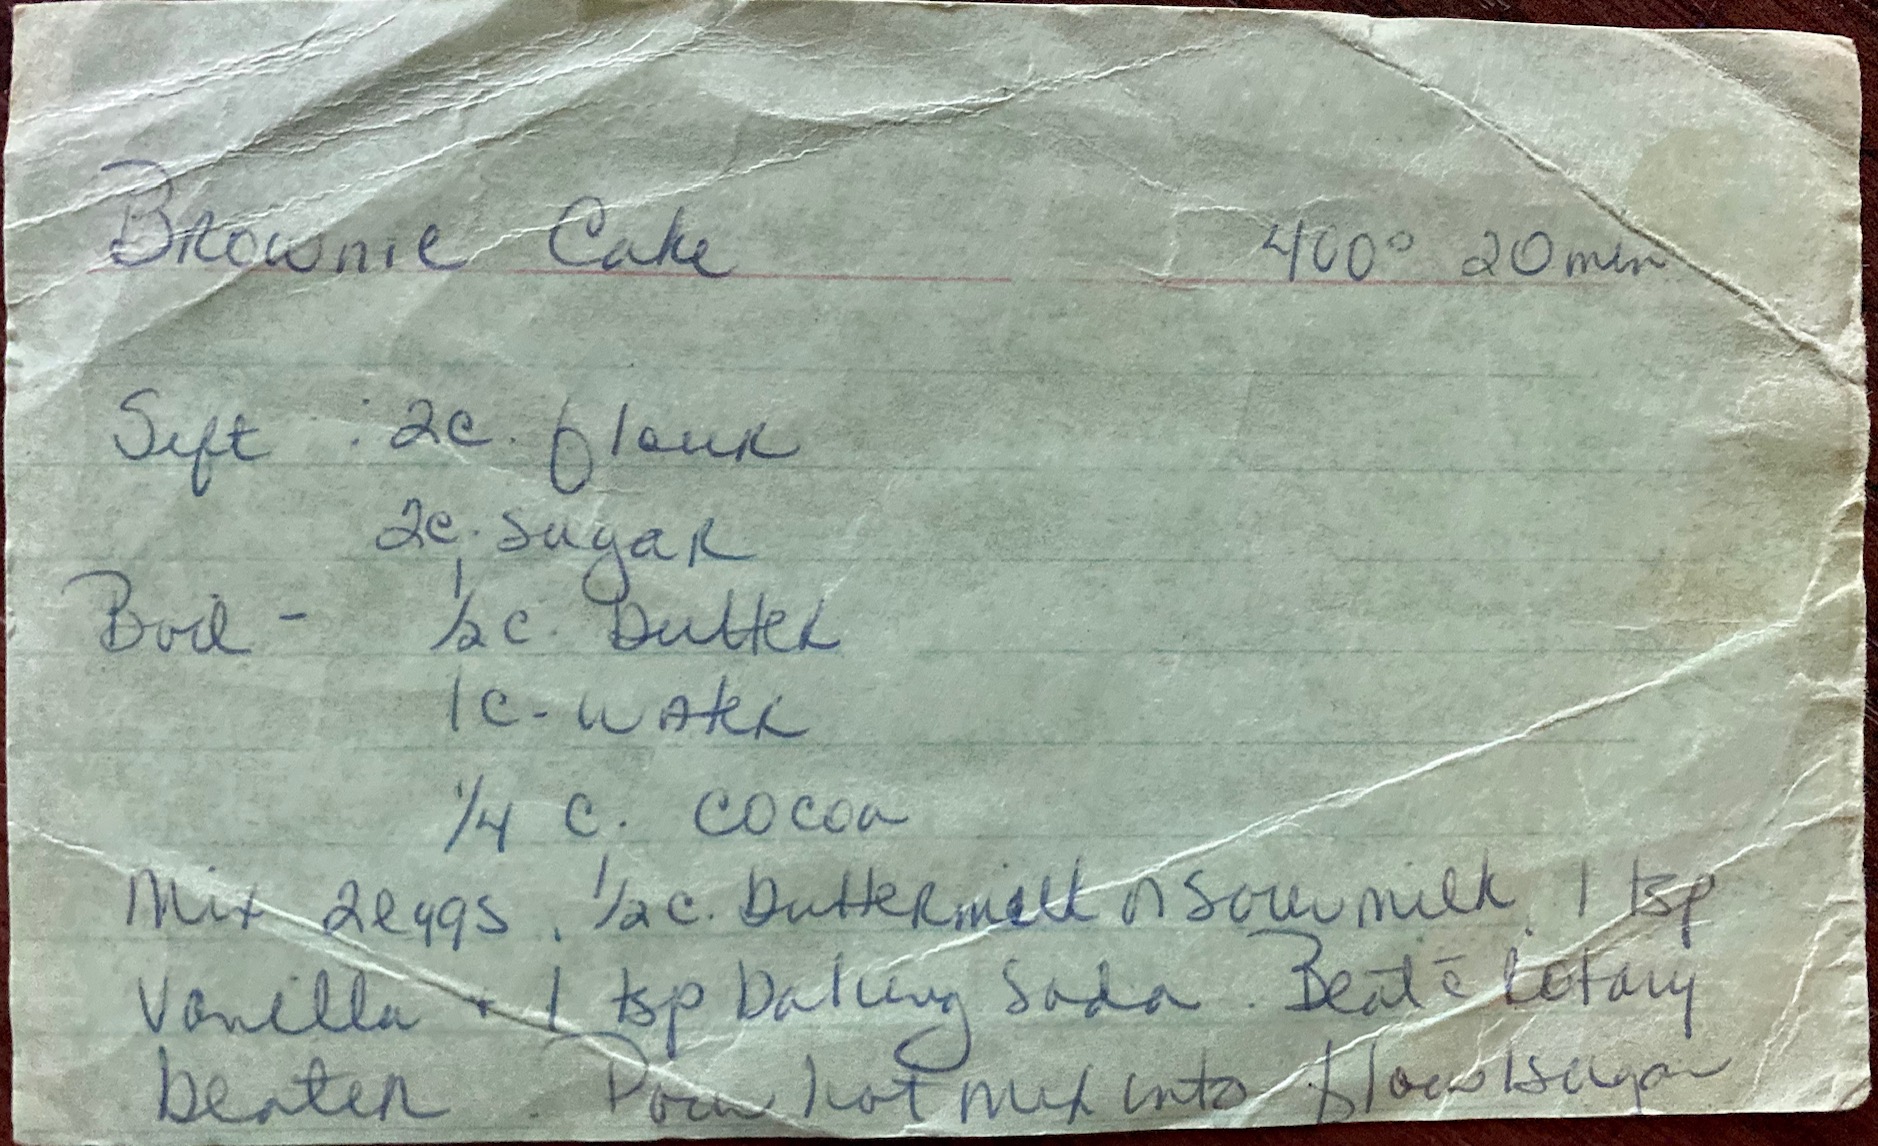 Brownie Cake 400° 20 min
Sift : 2c. flour
2c. sugar
Boil - 1/2 c. butter
1 c. water
1/4 c. cocoa
Mix 2 eggs, 1/2 c. buttermilk or sour milk, 1 tsp
vanilla + 1 tsp baking soda. Beat c̄ rotary
beater. Pour hot mix into flour & sugar